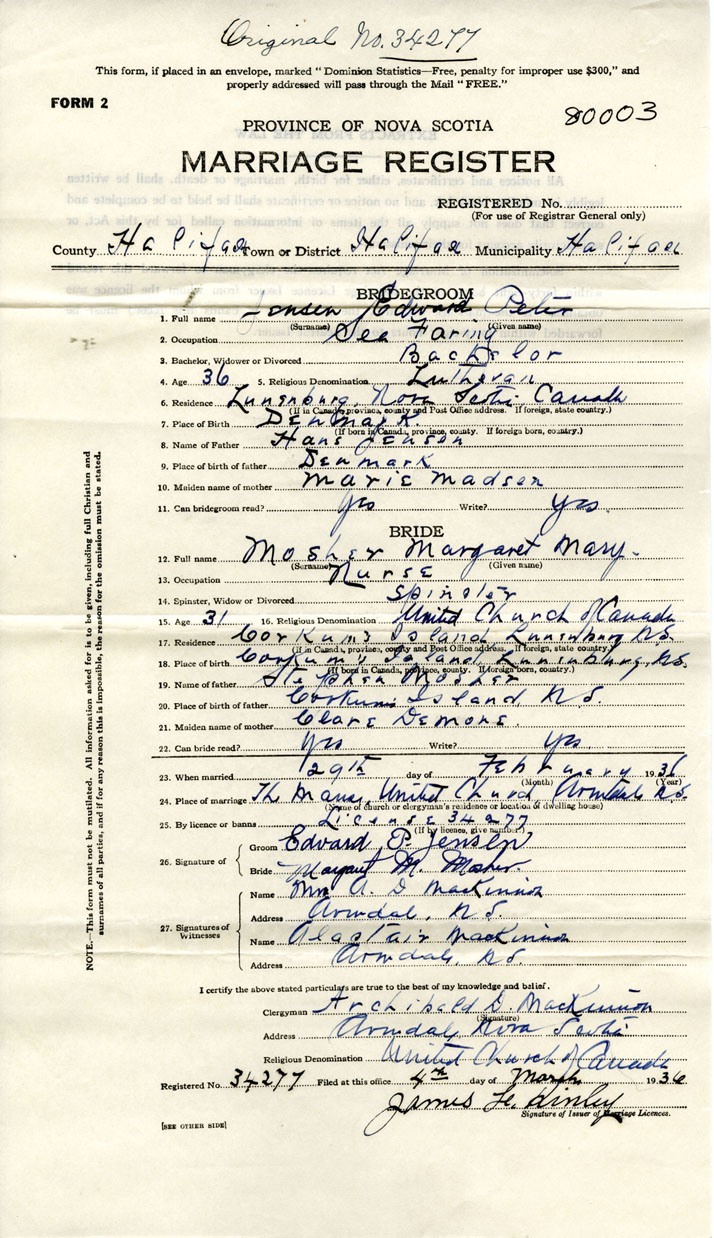 Original No. 34277
This form, if placed in an envelope, marked "Dominion Statistics—Free, penalty for improper use $300," and
properly addressed will pass through the Mail "FREE."
FORM 2
80003
PROVINCE OF NOVA SCOTIA
MARRIAGE REGISTER
REGISTERED No.
(For use of Registrar General only)
County Halifax Town or District Halifax Municipality Halifax
BRIDEGROOM
1. Full name Jensen Edward Peter
(Surname) (Given name)
2. Occupation Sea Faring
3. Bachelor, Widower or Divorced Bachelor
4. Age 36 5. Religious Denomination Lutheran
6. Residence Lunenburg, Nova Scotia Canada
(If in Canada, province, county and Post Office address. If foreign, state country.)
7. Place of Birth Denmark.
(If born in Canada, province, county. If foreign born, country.)
8. Name of Father Hans Jensen
9. Place of birth of father Denmark
10. Maiden name of mother Marie Madsen
11. Can bridegroom read? Yes Write? Yes
BRIDE
12. Full name Mosher Margaret Mary.
(Surname) (Given name)
13. Occupation Nurse
14. Spinster, Widow or Divorced Spinster
15. Age 31 16. Religious Denomination United Church of Canada
17. Residence Corkums Island Lunenburg N.S.
(If in Canada, province, county and Post Office address. If foreign, state country.)
18. Place of birth Corkums Island, Lunenburg, N.S.
(If born in Canada, province, county. If foreign born, country.)
19. Name of father Stephen Mosher
20. Place of birth of father Corkums Island N.S.
21. Maiden name of mother Clare Demone
22. Can bride read? Yes Write? Yes
23. When married 29th day of February 1936
(Month) (Year)
24. Place of marriage The Manse, United Church, Armdale N.S.
(Name of church or clergyman's residence or location of dwelling house)
25. By licence or banns License 34277
(If by licence, give number)
26. Signature of
Groom Edward P. Jensen
Bride Margaret M. Mosher
27. Signatures of Witnesses
Name Mrs A. D MacKinnon
Address Armdale, N.S.
Name Alastair MacKinnon
Address Armdale, N.S.
I certify the above stated particulars are true to the best of my knowledge and belief.
Clergyman Archibald D. MacKinnon
(Signature)
Address Armdale, Nova Scotia
Religious Denomination United Church of Canada
Registered No. 34277 Filed at this office 4th day of March 1936
James H.
Signature of Issuer of Marriage Licences.
[SEE OTHER SIDE]
NOTE.—This form must not be mutilated. All information asked for is to be given, including full Christian and
surnames of all parties, and if for any reason this is impossible, the reason for the omission must be stated.